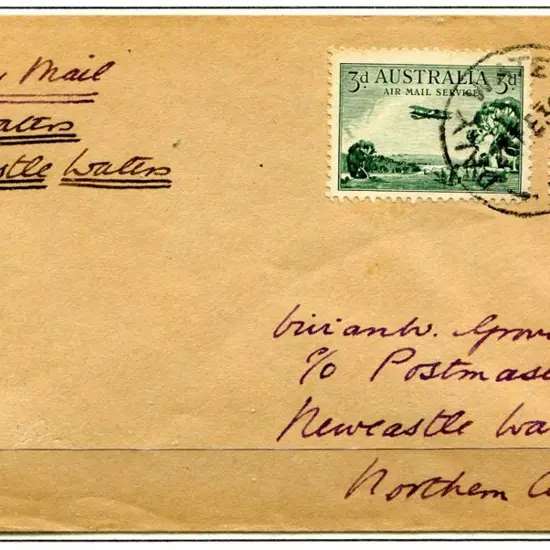 Mail
aters
stle Waters
3d AUSTRALIA 3d
AIR MAIL SERVICE
DALY WATE
Vivian W. Grov
c/o Postmas
Newcastle Wa
Northern